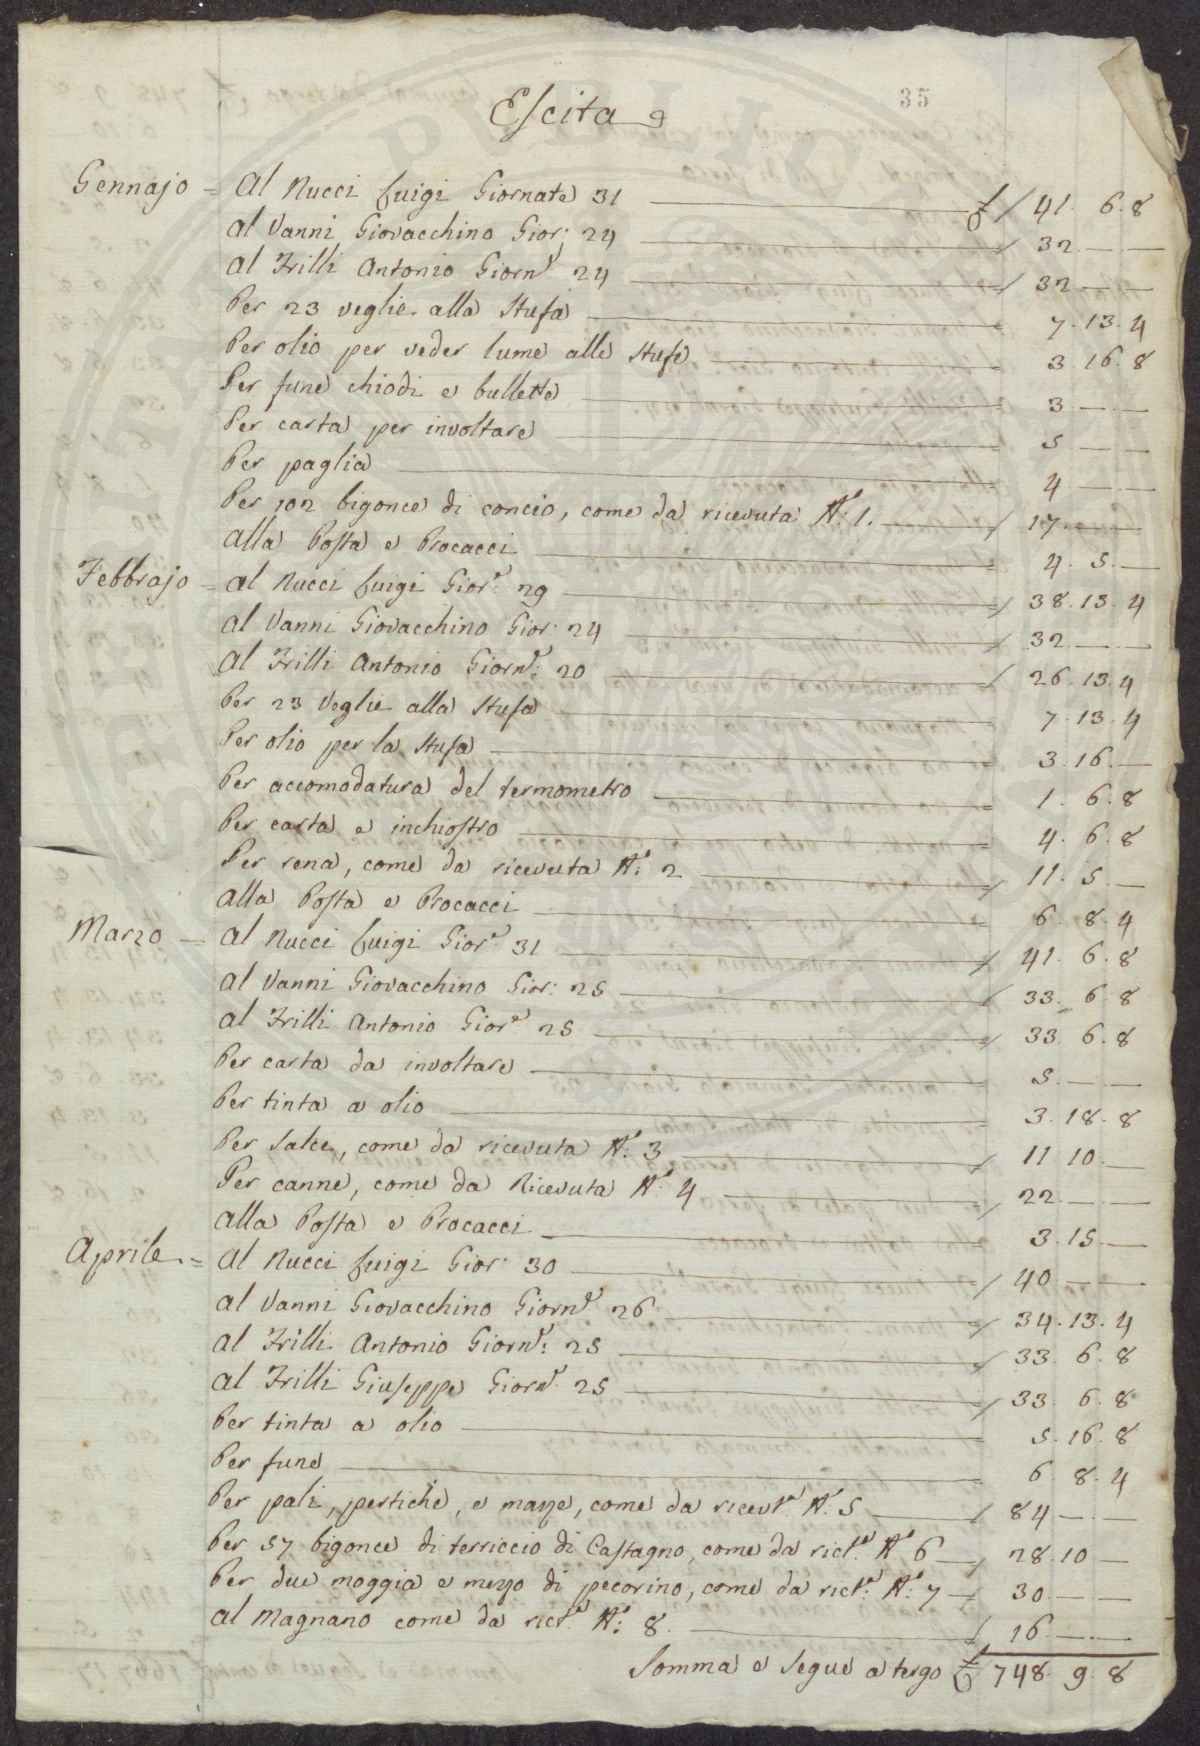 35
Escita
Gennajo = Al Nucci Luigi Giornate 31 £ 41. 6. 8
Al Vanni Giovacchino Gior: 24 32. — —
Al Frilli Antonio Giorn.e 24 32. — —
Per 23 veglie alla Stufa 7. 13. 4
Per olio per veder lume alle Stufe 3. 16. 8
Per fune chiodi e bullette 3 — —
Per carta per involtare 5 — —
Per paglia 4 — —
Per 102 bigonce di concio, come da ricevuta N.o 1. 17. — —
Alla Posta e Procacci 4. 5. —
Febbrajo = Al Nucci Luigi Gior.e 29 38. 13. 4
Al Vanni Giovacchino Gior: 24 32. — —
Al Frilli Antonio Giorn.e 20 26. 13. 4
Per 23 Veglie alla Stufa 7. 13. 4
Per olio per la Stufa 3. 16. —
Per accomodatura del termometro 1. 6. 8
Per carta e inchiostro 4. 6. 8
Per rena, come da ricevuta N.o 2 11. 5. —
Alla Posta e Procacci 6. 8. 4
Marzo — Al Nucci Luigi Gior.e 31 41. 6. 8
Al Vanni Giovacchino Gior: 25 33. 6. 8
Al Frilli Antonio Gior.e 25 33. 6. 8
Per carta da involtare 5. — —
Per tinta a olio 3. 18. 8
Per Salci, come da ricevuta N.o 3 11 10. —
Per canne, come da Ricevuta N.o 4 22. — —
Alla Posta e Procacci 3. 15. —
Aprile = Al Nucci Luigi Gior: 30 40 — —
Al Vanni Giovacchino Giorn.e 26 34. 13. 4
Al Frilli Antonio Giorn.e 25 33. 6. 8
Al Frilli Giuseppe Giorn.e 25 33. 6. 8
Per tinta a olio 5. 16. 8
Per fune 6. 8. 4
Per pali, pertiche, e mazze, come da ricevt.a N.o 5 84 — —
Per 57 bigonce di terriccio di Castagno, come da rict.a N.o 6 28. 10 —
Per due moggia e mezzo di pecorino, come da rict.a N.o 7 30 — —
Al Magnano come da rict.a N.o 8. 16 — —
Somma e Segue a tergo £ 748. 9. 8